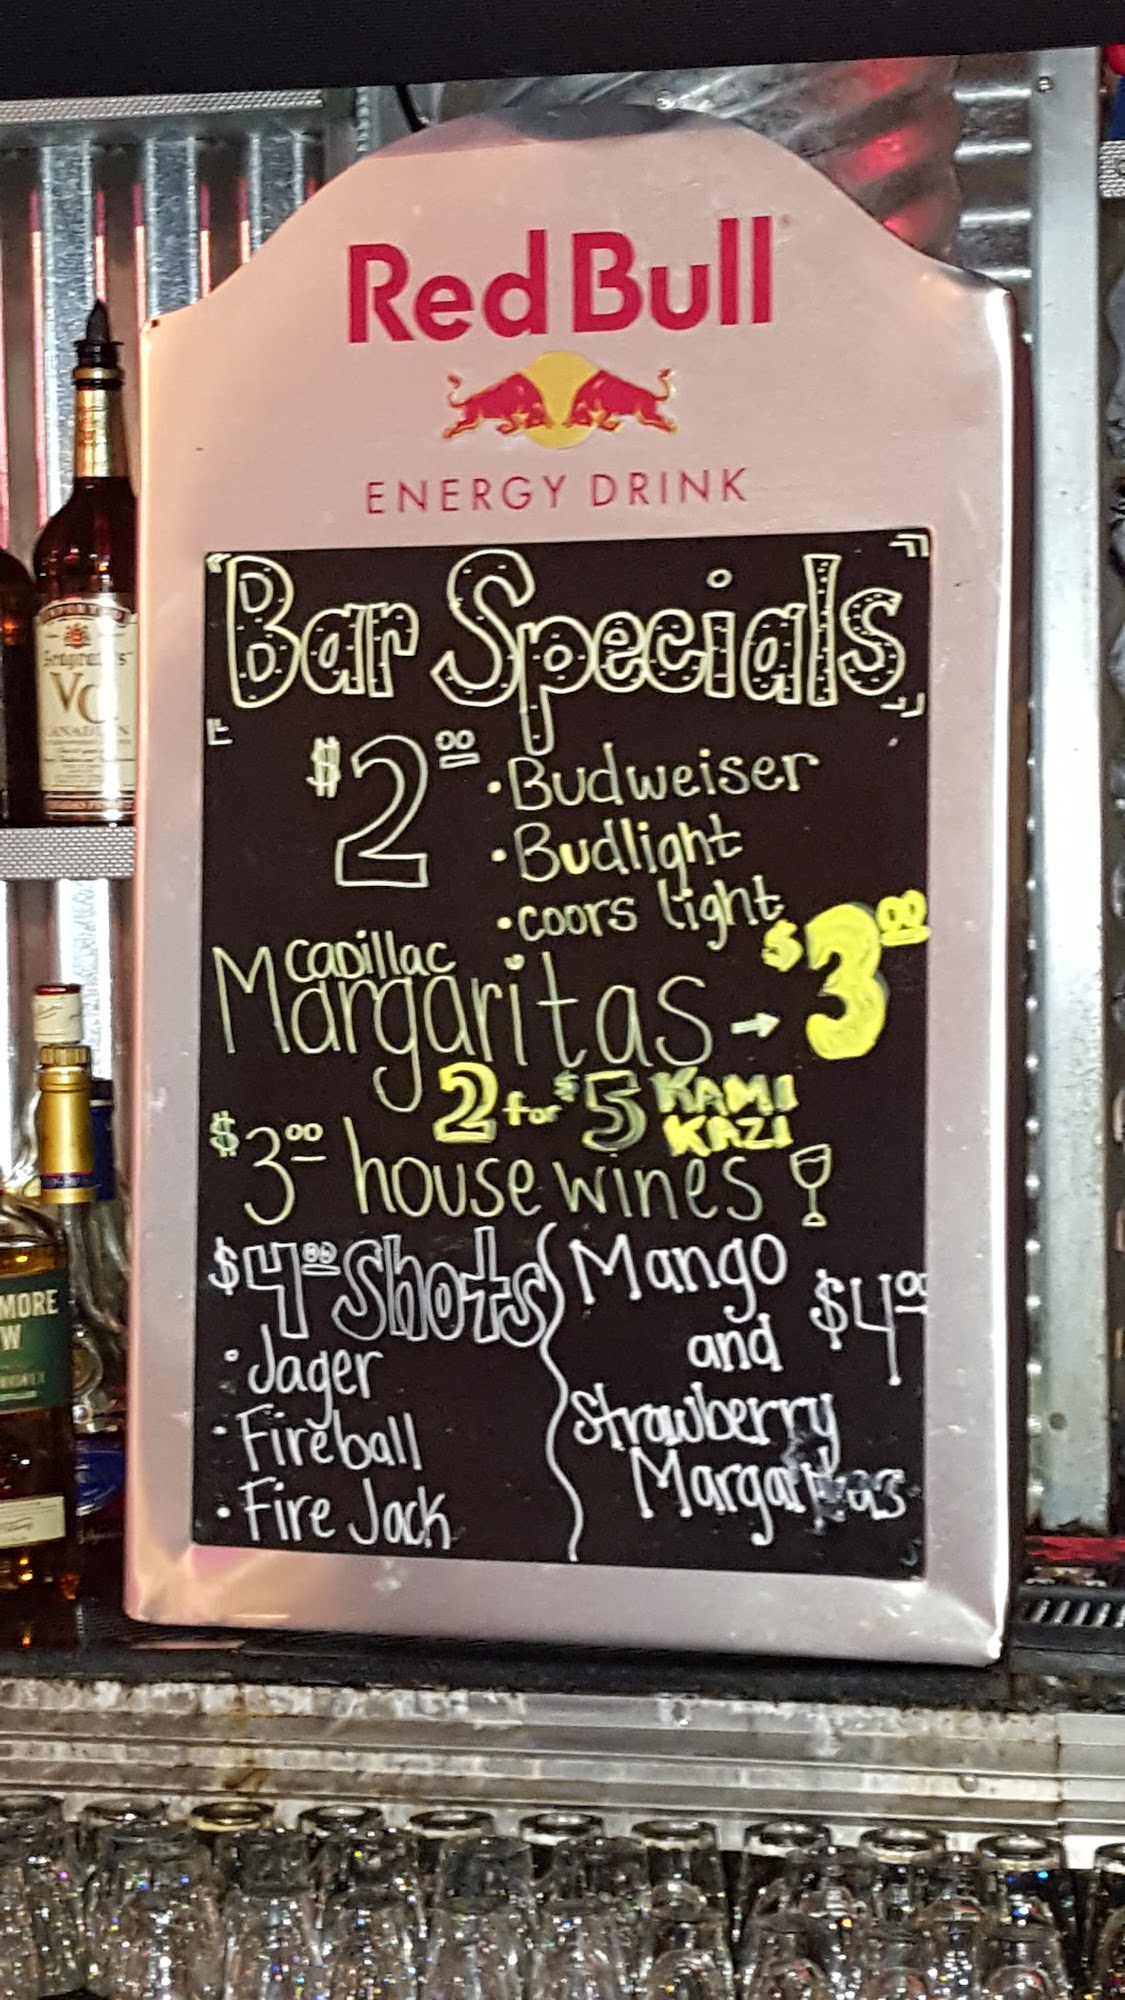 Red Bull
ENERGY DRINK
Bar Specials
$2.00
• Budweiser
• Budlight
• coors light
cadillac
Margaritas → $3.00
2 for $5 KAMI
KAZI
$3.00 house wines
$4.00 Shots
• Jager
• Fireball
• Fire Jack
Mango
and $4.00
Strawberry
Margaritas
Seagram's
VO
CANADIAN
MORE